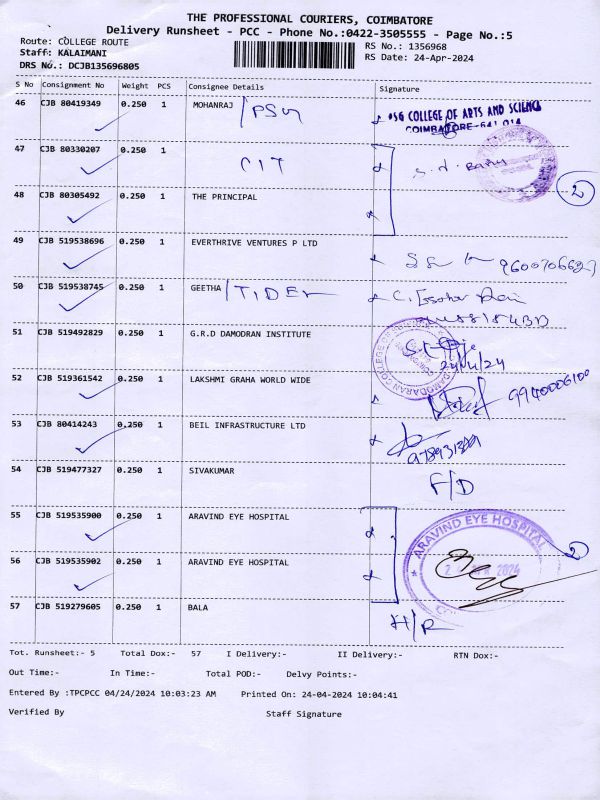 THE PROFESSIONAL COURIERS, COIMBATORE
Delivery Runsheet - PCC - Phone No.:0422-3505555 - Page No.:5
Route: COLLEGE ROUTE
Staff: KALAIMANI
DRS No.: DCJB135696805
RS No.: 1356968
RS Date: 24-Apr-2024
S No Consignment No Weight PCS Consignee Details Signature
46 CJB 80419349 0.250 1 MOHANRAJ /PSG
PSG COLLEGE OF ARTS AND SCIENCE
COIMBATORE-641 014
47 CJB 80330207 0.250 1 CIT
2
48 CJB 80305492 0.250 1 THE PRINCIPAL
49 CJB 519538696 0.250 1 EVERTHRIVE VENTURES P LTD
50 CJB 519538745 0.250 1 GEETHA /TIDEL
51 CJB 519492829 0.250 1 G.R.D DAMODRAN INSTITUTE
24/4/24
52 CJB 519361542 0.250 1 LAKSHMI GRAHA WORLD WIDE
53 CJB 80414243 0.250 1 BEIL INFRASTRUCTURE LTD
54 CJB 519477327 0.250 1 SIVAKUMAR F/D
55 CJB 519535900 0.250 1 ARAVIND EYE HOSPITAL
ARAVIND EYE HOSPITAL
2
56 CJB 519535902 0.250 1 ARAVIND EYE HOSPITAL
2024
57 CJB 519279605 0.250 1 BALA H/R
Tot. Runsheet:- 5 Total Dox:- 57 I Delivery:- II Delivery:- RTN Dox:-
Out Time:- In Time:- Total POD:- Delvy Points:-
Entered By :TPCPCC 04/24/2024 10:03:23 AM Printed On: 24-04-2024 10:04:41
Verified By Staff Signature